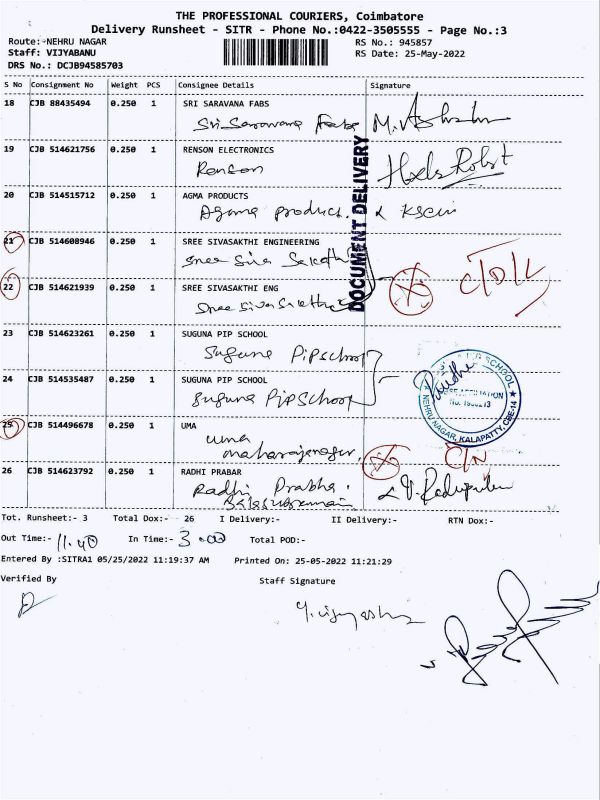 THE PROFESSIONAL COURIERS, Coimbatore
Delivery Runsheet - SITR - Phone No.:0422-3505555 - Page No.:3
Route:-NEHRU NAGAR
Staff: VIJYABANU
DRS No.: DCJB94585703
RS No.: 945857
RS Date: 25-May-2022
S No Consignment No Weight PCS Consignee Details Signature
18 CJB 88435494 0.250 1 SRI SARAVANA FABS
Sri Saravana Fabs
19 CJB 514621756 0.250 1 RENSON ELECTRONICS
Renson
20 CJB 514515712 0.250 1 AGMA PRODUCTS
Agma product.
21 CJB 514608946 0.250 1 SREE SIVASAKTHI ENGINEERING
Sree Siva Sakthi
22 CJB 514621939 0.250 1 SREE SIVASAKTHI ENG
Sree Siva Sakthi
DOCUMENT DELIVERY
C/D/L
23 CJB 514623261 0.250 1 SUGUNA PIP SCHOOL
Suguna Pip school
24 CJB 514535487 0.250 1 SUGUNA PIP SCHOOL
Suguna Pip School
PIP SCHOOL
AFFILIATION
NEHRU NAGAR, KALAPATTY, CBE-14
25 CJB 514496678 0.250 1 UMA
uma
maharajanagar,
C/N
26 CJB 514623792 0.250 1 RADHI PRABAR
Radhi Prabha.
Balasubramani
Tot. Runsheet:- 3 Total Dox:- 26 I Delivery:- II Delivery:- RTN Dox:-
Out Time:- 11.40 In Time:- 3.00 Total POD:-
Entered By :SITRA1 05/25/2022 11:19:37 AM Printed On: 25-05-2022 11:21:29
Verified By Staff Signature